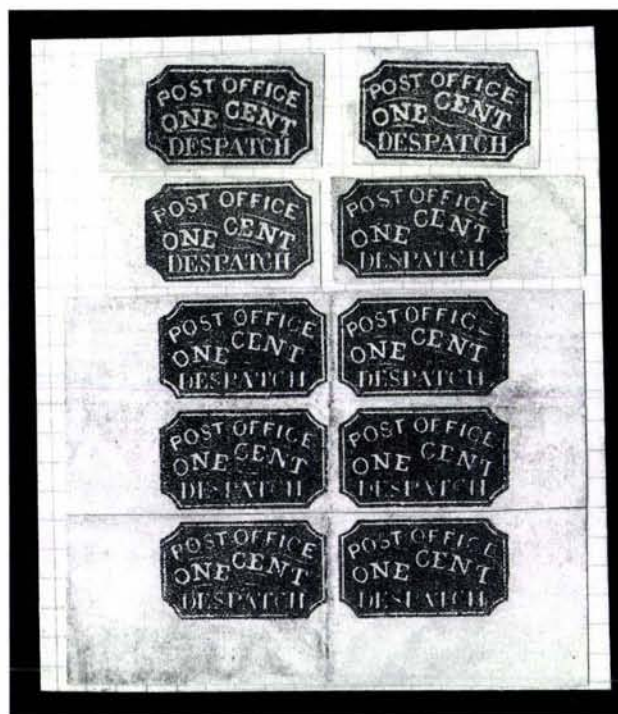 POST OFFICE
ONE CENT
DESPATCH
POST OFFICE
ONE CENT
DESPATCH
POST OFFICE
ONE CENT
DESPATCH
POST OFFICE
ONE CENT
DESPATCH
POST OFFICE
ONE CENT
DESPATCH
POST OFFICE
ONE CENT
DESPATCH
POST OFFICE
ONE CENT
DESPATCH
POST OFFICE
ONE CENT
DESPATCH
POST OFFICE
ONE CENT
DESPATCH
POST OFFICE
ONE CENT
DESPATCH